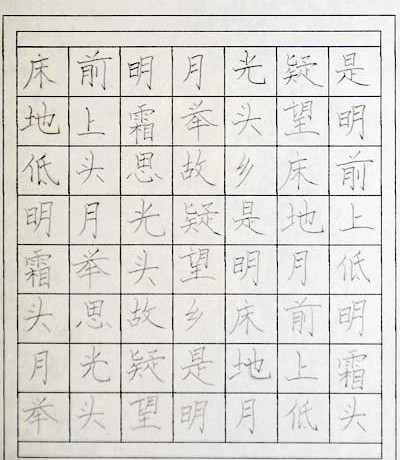 床前明月光疑是
地上霜举头望明
低头思故乡床前
明月光疑是地上
霜举头望明月低
头思故乡床前明
月光疑是地上霜
举头望明月低头